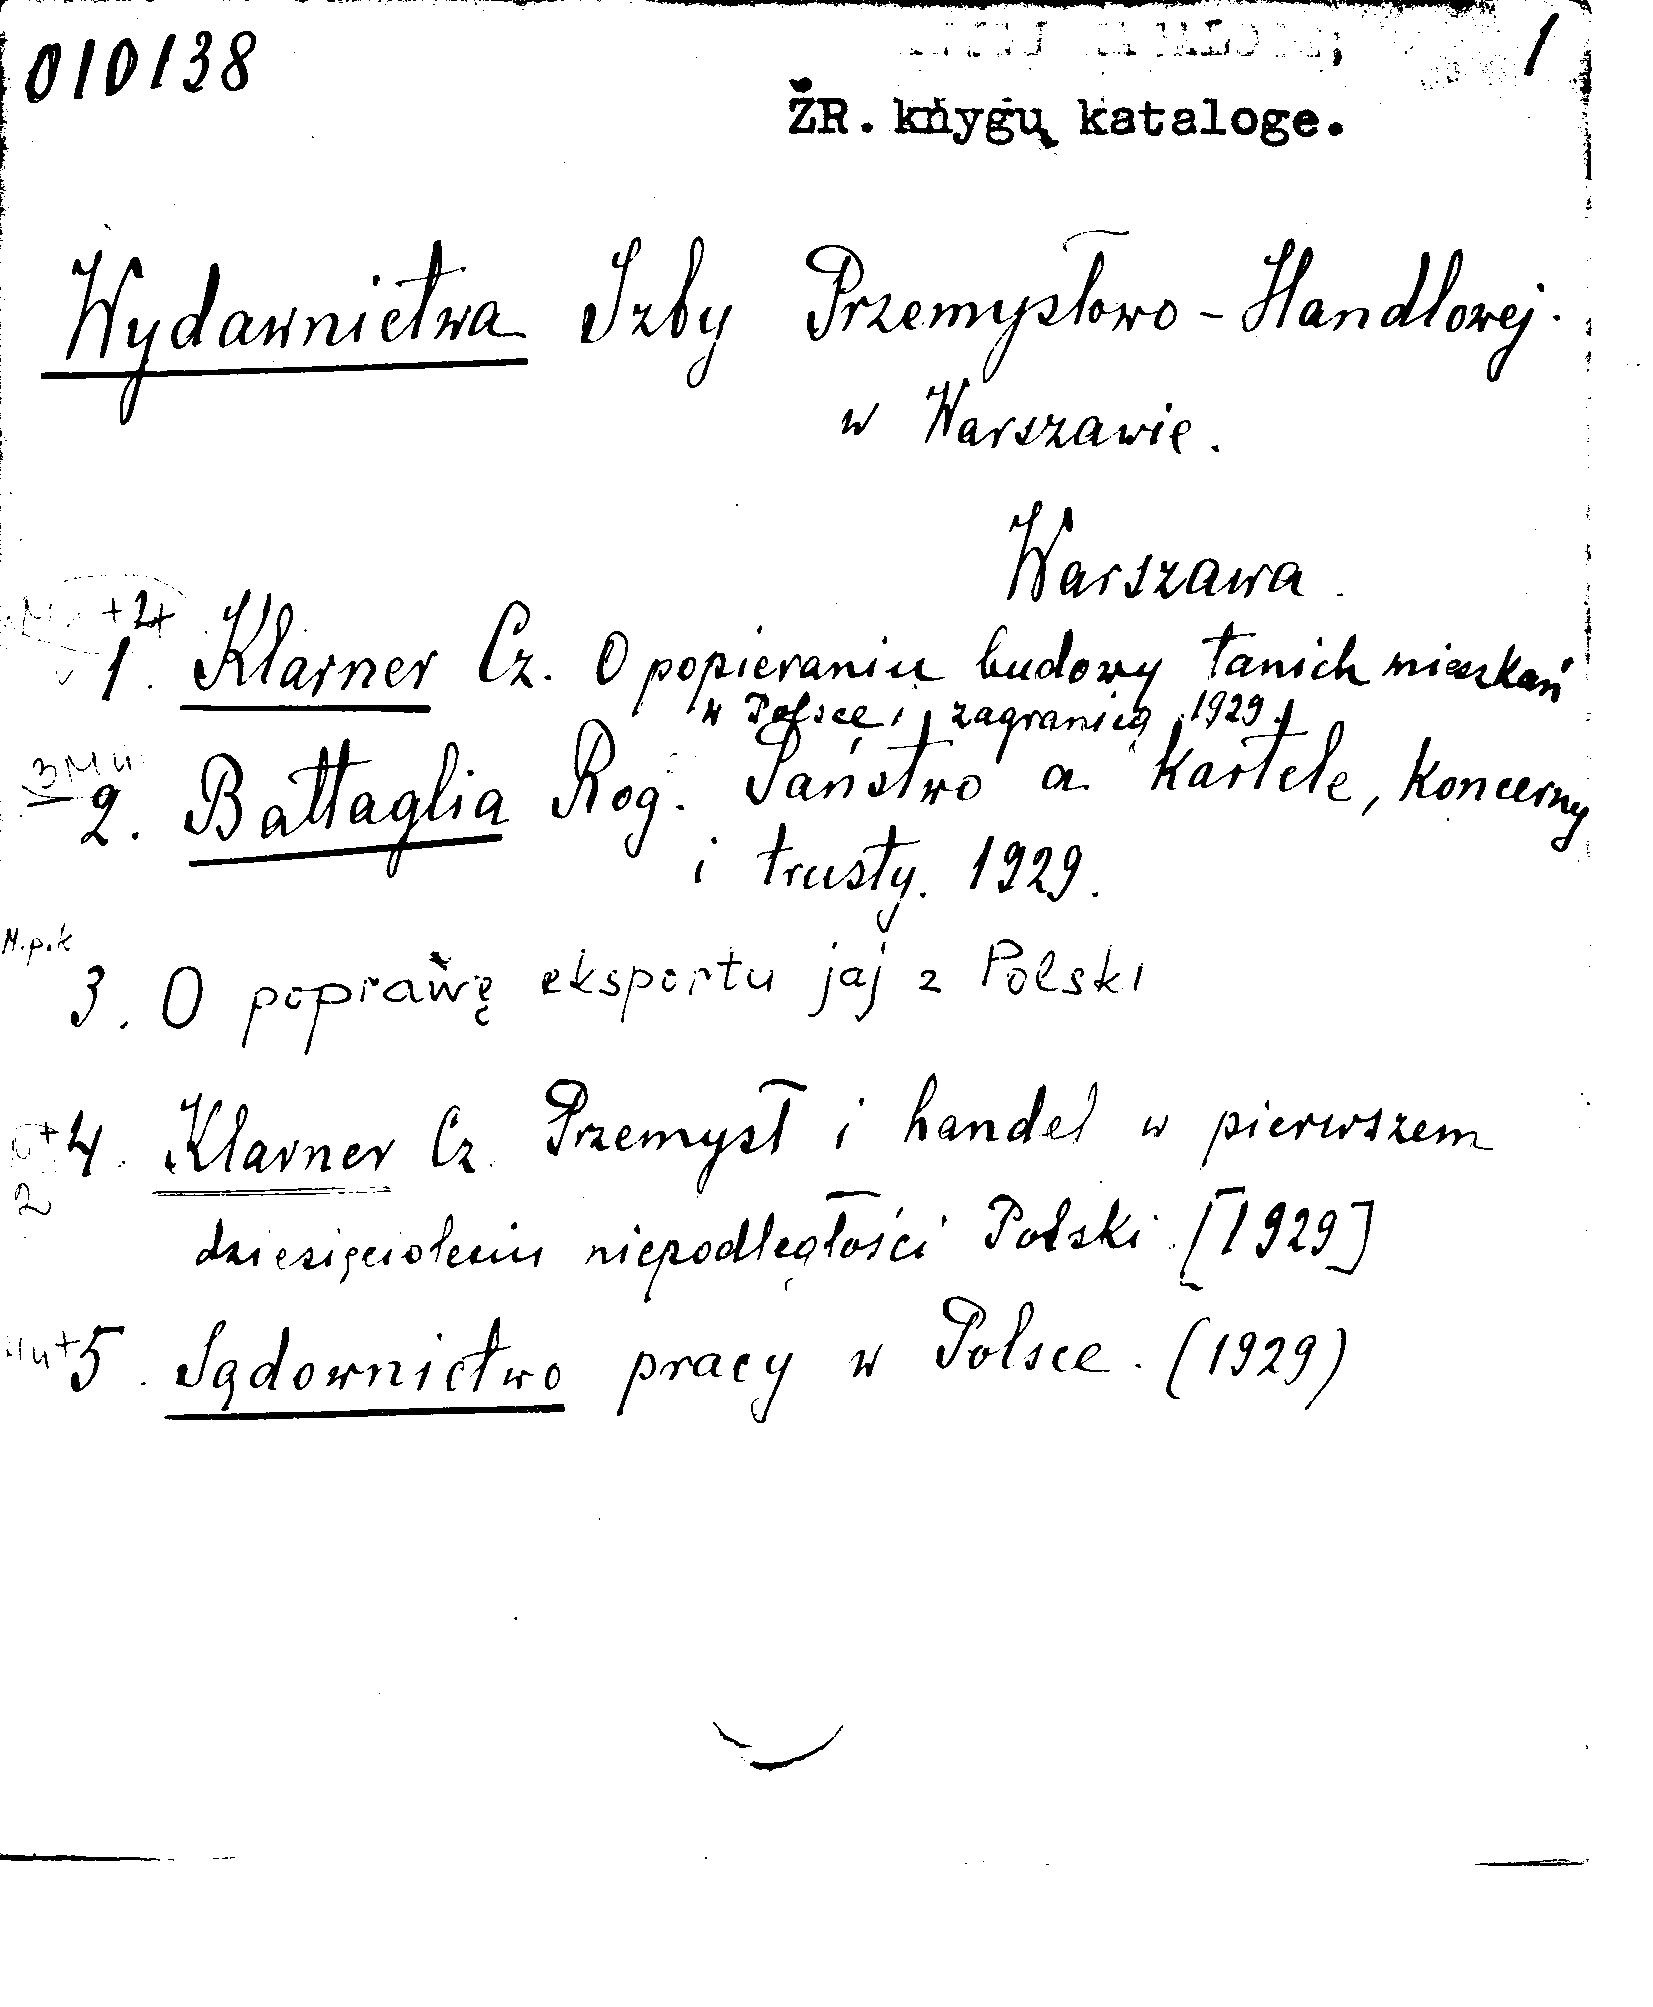 010138
1
ŽR. knygų kataloge.
Wydawnictwa Izby Przemysłowo-Handlowej
w Warszawie.
Warszawa.
+4
1. Klarner Cz. O popieraniu budowy tanich mieszkań
w Polsce i zagranicą 1929.
2. Battaglia Rog. Państwo a kartele, koncerny
i trusty. 1929.
N.p.k
3. O poprawę eksportu jaj z Polski
+4. Klarner Cz. Przemysł i handel w pierwszem
2
dziesięcioleciu niepodległości Polski [1929]
+5. Sądownictwo pracy w Polsce. (1929)